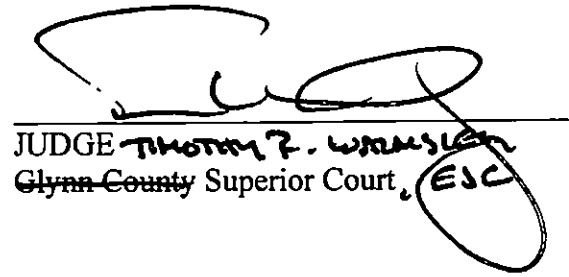 JUDGE TIMOTHY R. WALMSLEY
Glynn County Superior Court, EJC